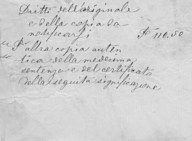 Dritto dell'originale
e della copia da
notificarsi
Per altra copia auten
tica della medesima
sentenza e del certificato
della seguita significazione
110.50